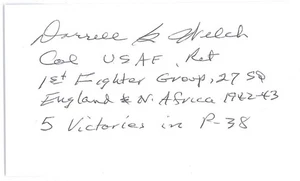 Darrell G Welch
Col USAF, Ret
1st Fighter Group, 27 SQ
England & N. Africa 1942-43
5 Victories in P-38